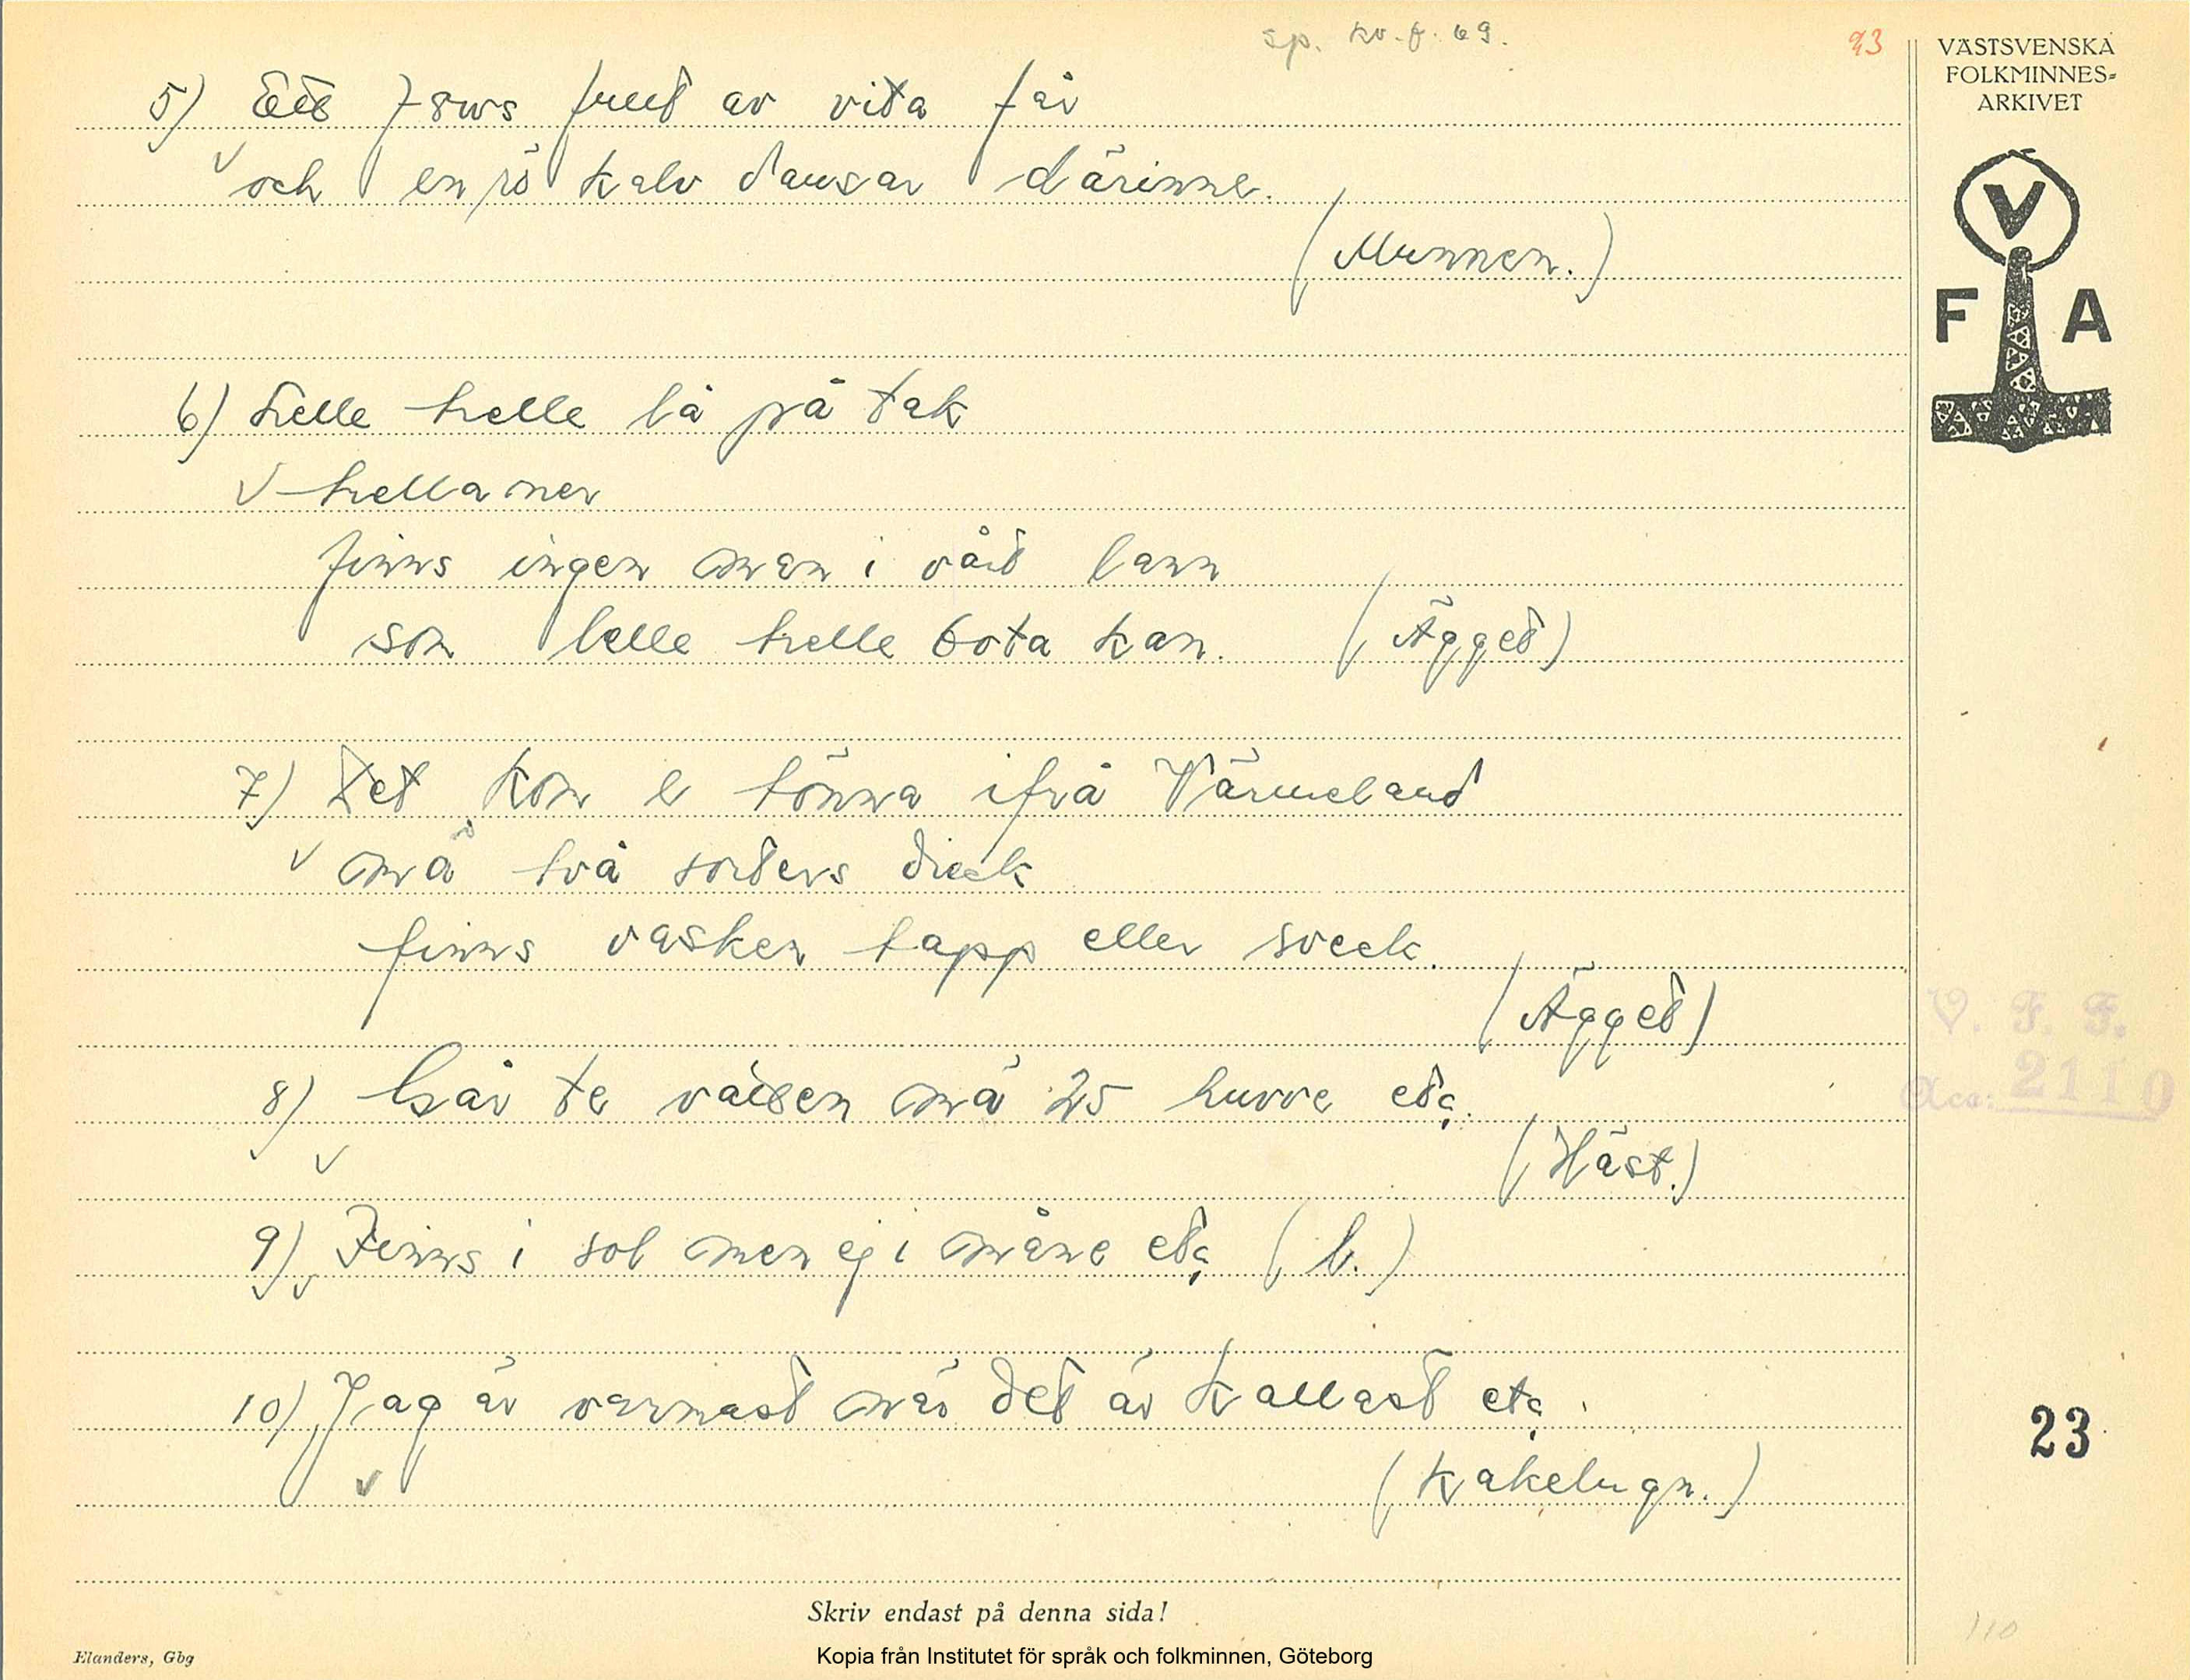 sp. kv. f. 69.
23
VÄSTSVENSKA
FOLKMINNES-
ARKIVET
V
F A
5) Ett fäus fullt av vita får
och en rö kalv dansar därinne.
(Munnen.)
6) Lelle trelle lå på tak
trella ner
finns ingen man i vårt lann
som lelle trelle bota kan. (Ägget)
7) Det kom e tönna ifrå Värmeland
mä två sorters drick
finns vasken tapp eller sveck.
(Ägget)
8) Går te vallen mä 25 huvve etc.
(Häst.)
9) Finns i sol men ej i måne etc (l.)
10) Jag är varmast när det är kallast etc.
(Kakelugn.)
V. F. F.
Acc: 2110
23
110
Skriv endast på denna sida!
Elanders, Gbg
Kopia från Institutet för språk och folkminnen, Göteborg